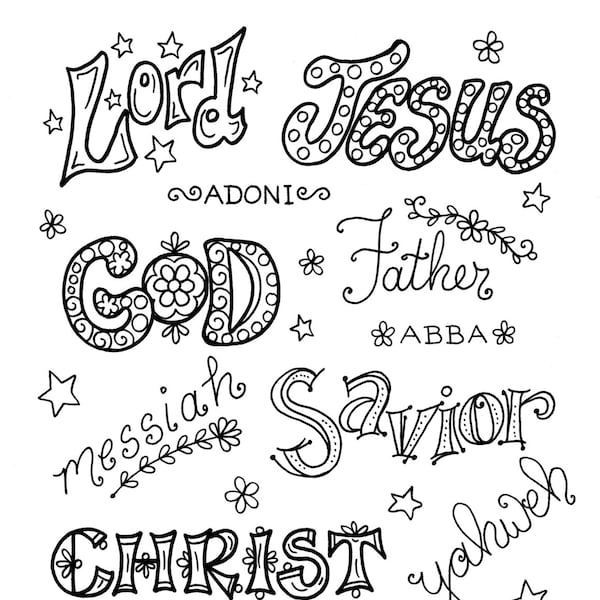 Lord
Jesus
ADONI
GOD
Father
ABBA
messiah
Savior
CHRIST
yahweh